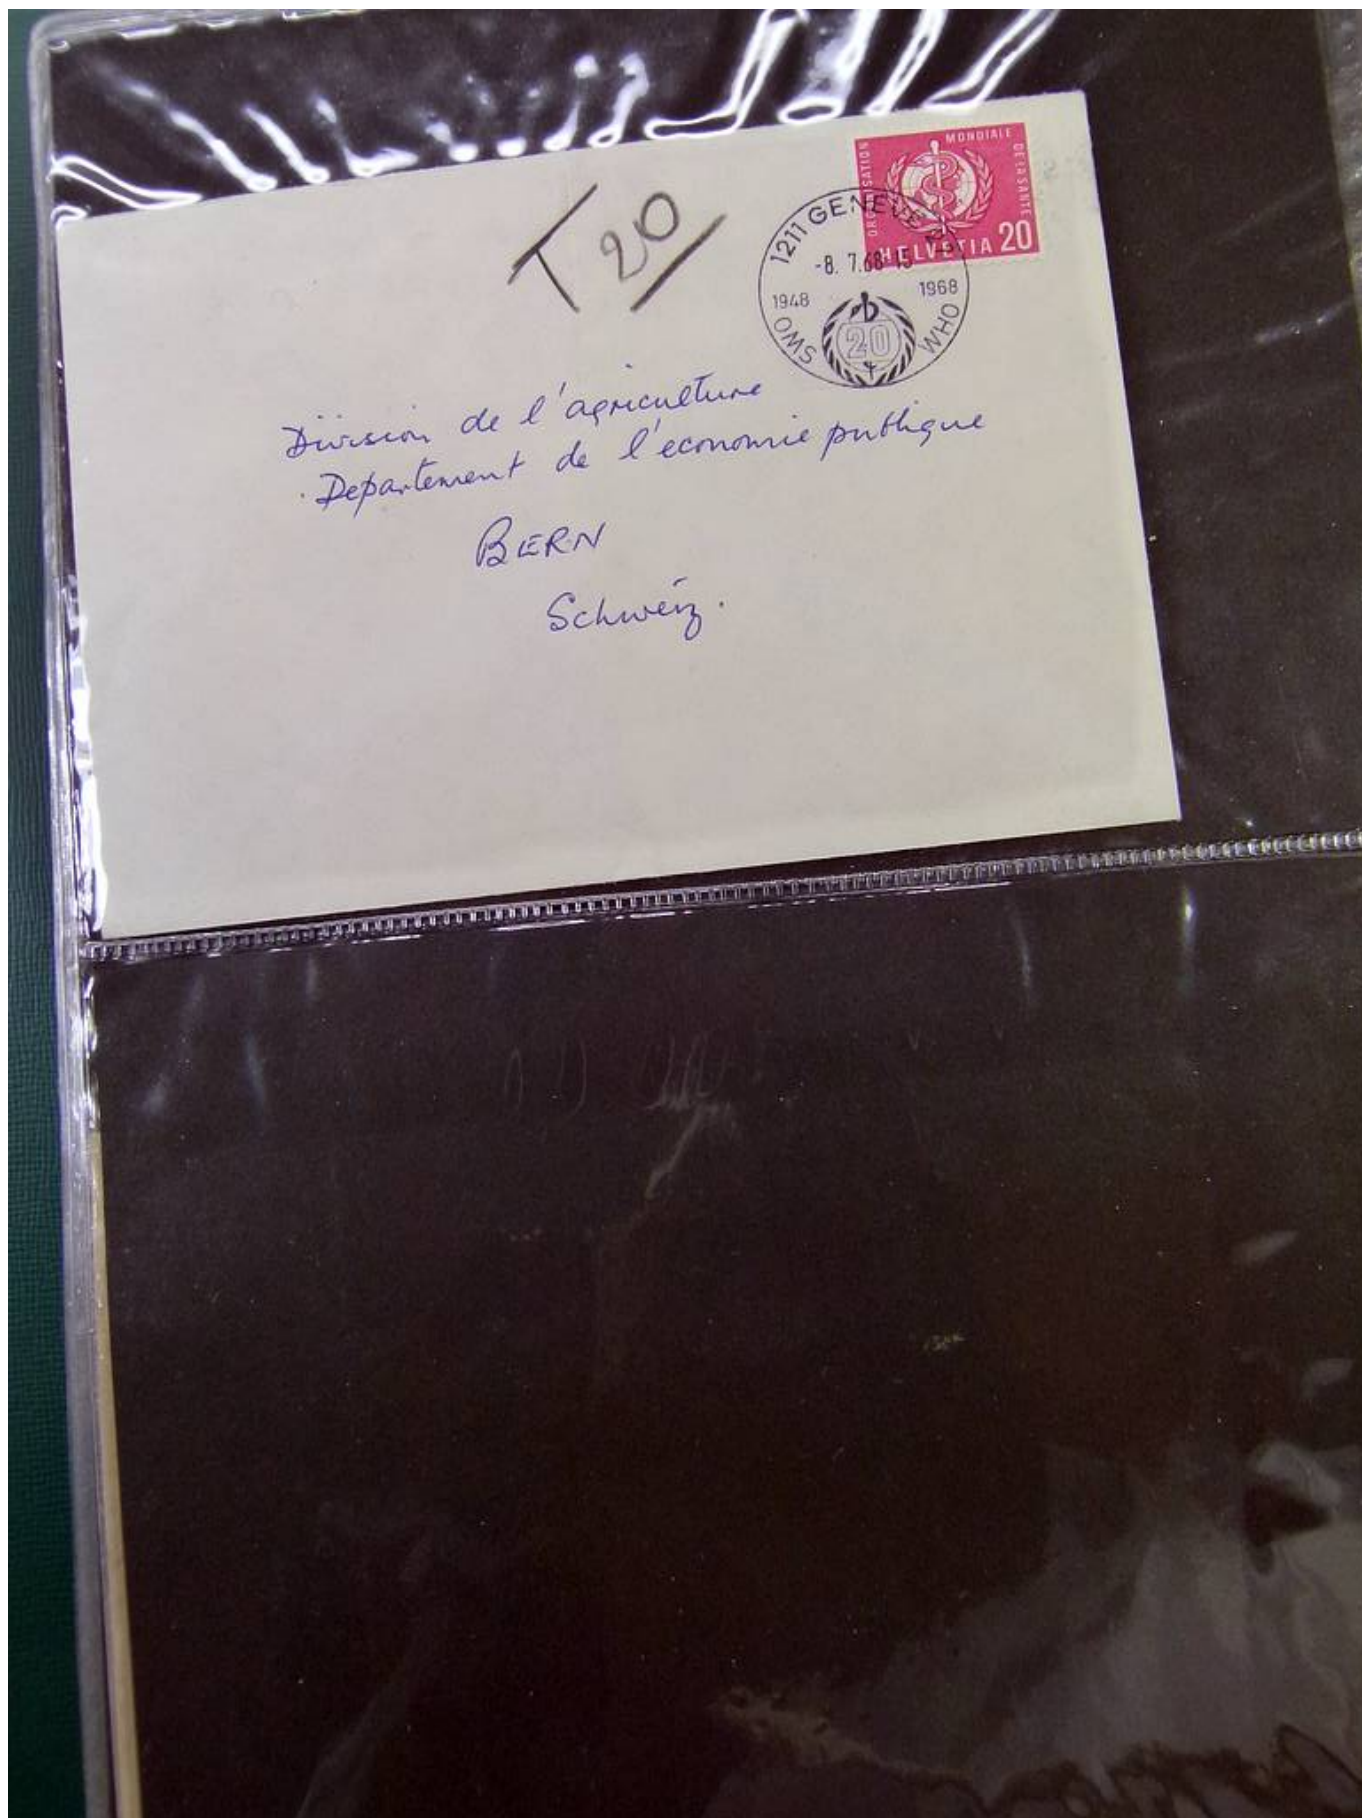 T 20
ORGANISATION MONDIALE DE LA SANTÉ
HELVETIA 20
1211 GENÈVE
-8. 7.68-15
1948 1968
OMS WHO
20
Division de l'agriculture
Departement de l'économie publique
BERN
Schweiz.